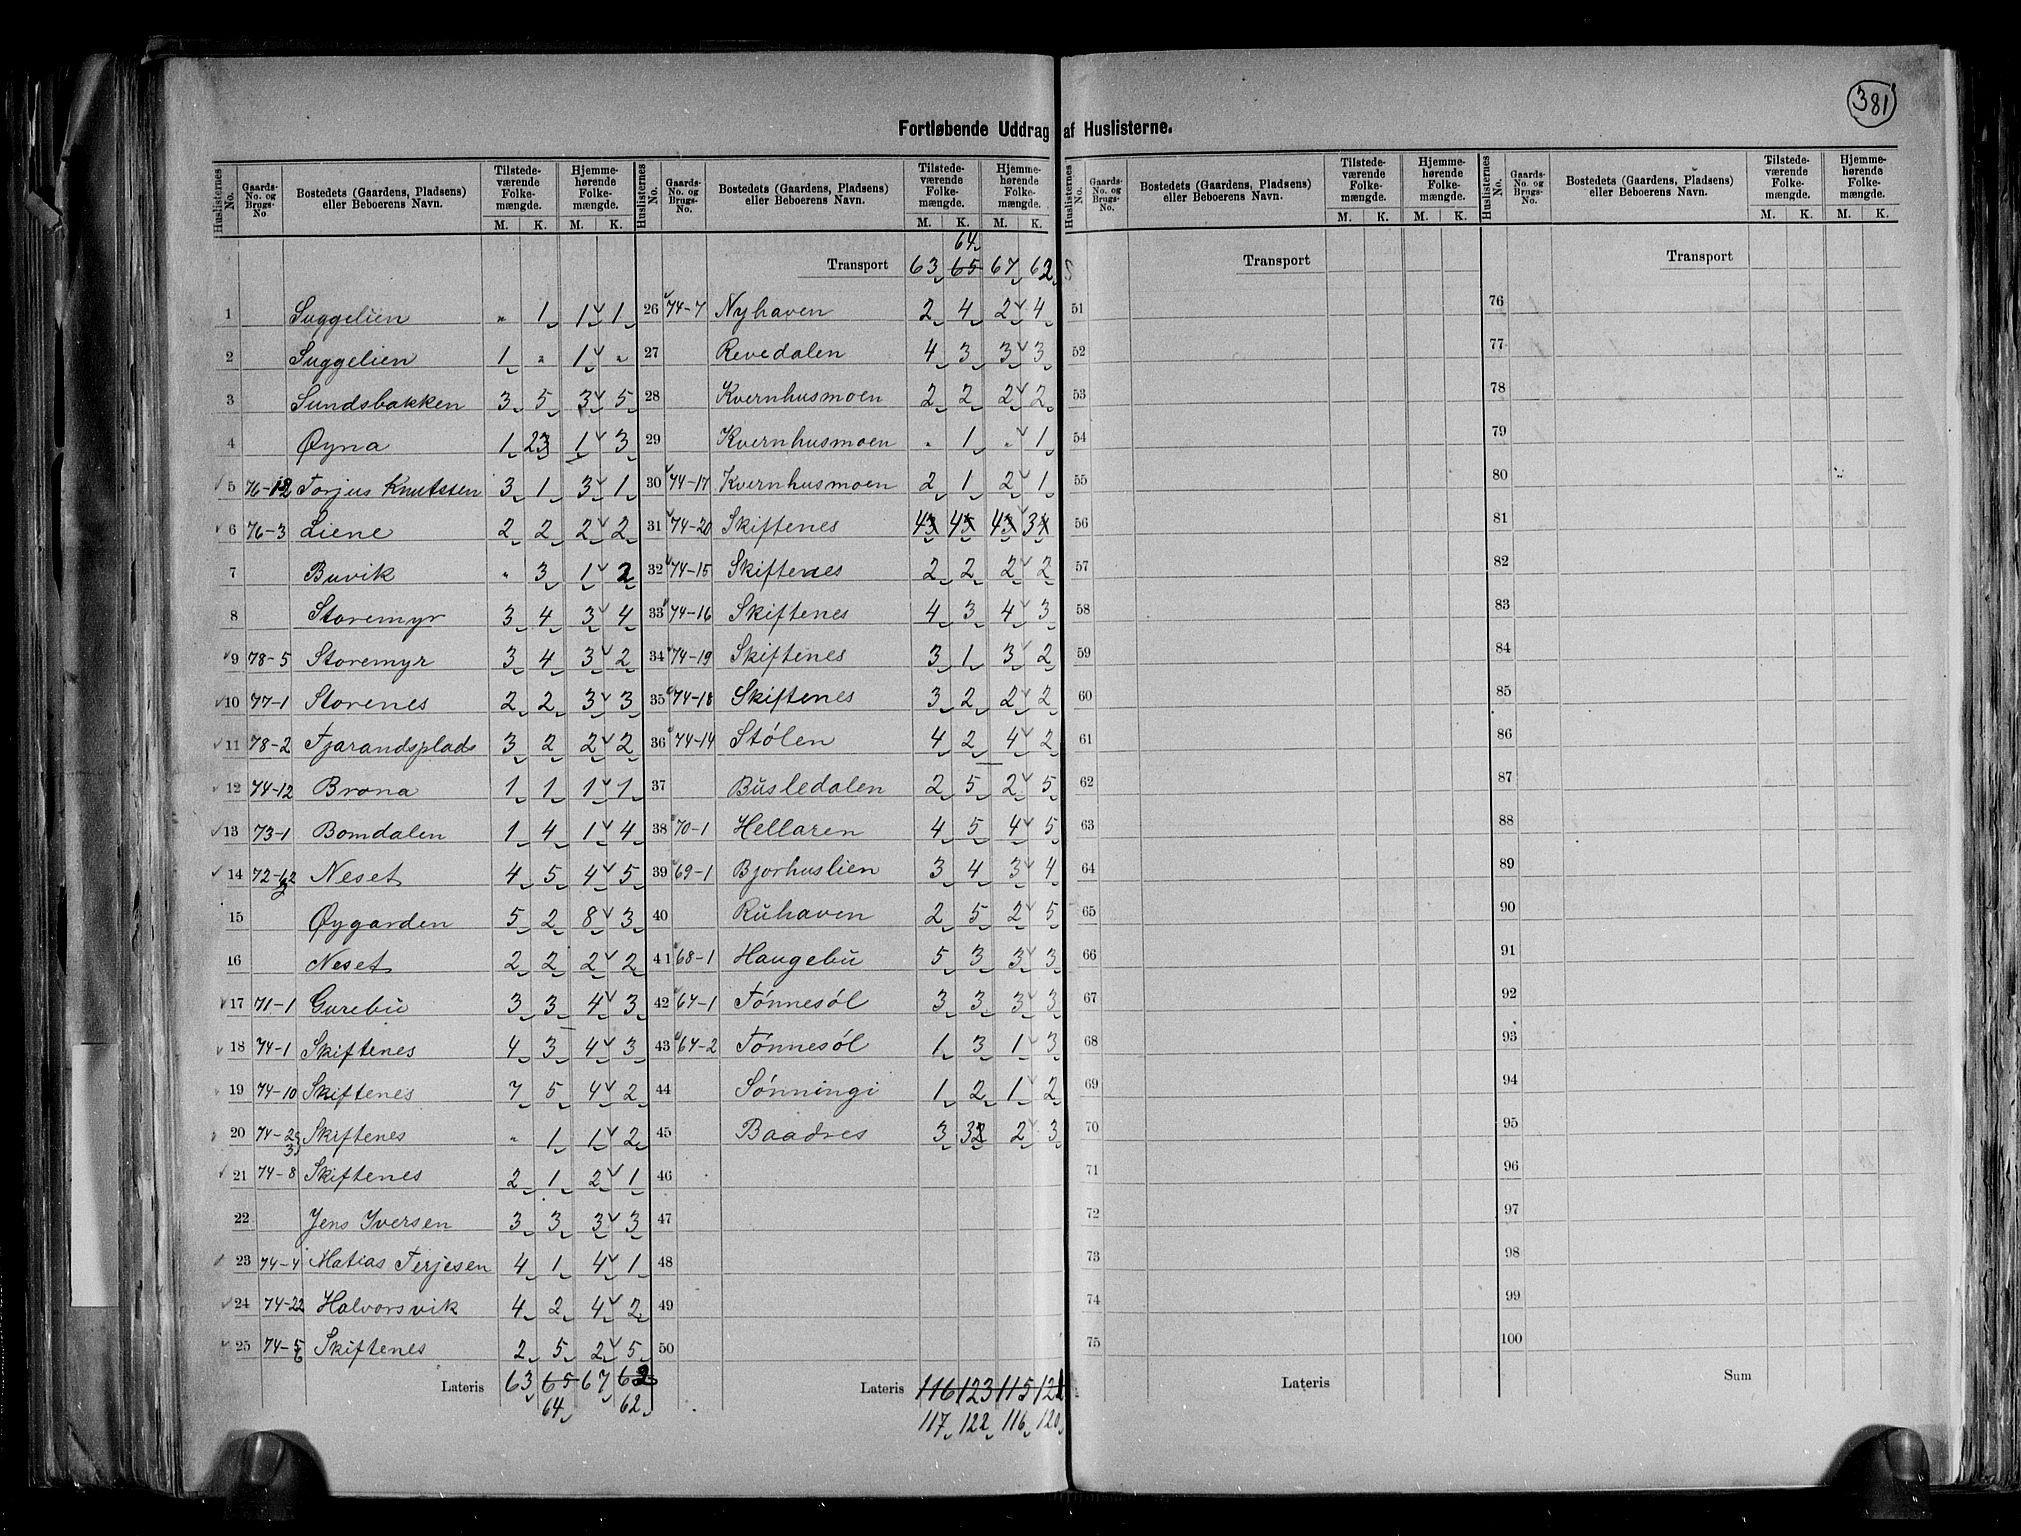 381
Fortløbende Uddrag af Huslisterne.
Huslisternes No. Gaards-No. og Brugs-No Bostedets (Gaardens, Pladsens) eller Beboerens Navn. Tilstedeværende Folkemængde. M. K. Hjemmehørende Folkemængde. M. K.
1 Suggelien " 1 1 1
2 Suggelien 1 " 1 "
3 Sundsbakken 3 5 3 5
4 Øyna 1 23 1 3
5 76-12 Torjus Knutsten 3 1 3 1
6 76-3 Liene 2 2 2 2
7 Buvik " 3 1 2
8 Storemyr 3 4 3 4
9 78-5 Storemyr 3 4 3 2
10 77-1 Storenes 2 2 3 3
11 78-2 Fjarandsplads 3 2 2 2
12 74-12 Brona 1 1 1 1
13 73-1 Bomdalen 1 4 1 4
14 72-1 Neset 4 5 4 5
15 Øygarden 5 2 8 3
16 Neset 2 2 2 2
17 71-1 Gurebu 3 3 4 3
18 74-1 Skiftenes 4 3 4 3
19 74-10 Skiftenes 7 5 4 2
20 74-2 3 Skiftenes " 1 1 2
21 74-8 Skiftenes 2 1 2 1
22 Jens Iversen 3 3 3 3
23 74-4 Matias Terjesen 4 1 4 1
24 74-22 Halvorsvik 4 2 4 2
25 74-5 6 Skiftenes 2 5 2 5
Lateris 63 65 67 62
64 62
Huslisternes No. Gaards-No. og Brugs-No. Bostedets (Gaardens, Pladsens) eller Beboerens Navn. Tilstedeværende Folkemængde. M. K. Hjemmehørende Folkemængde. M. K.
64
Transport 63 65 67 62
26 74-7 Nyhaven 2 4 2 4
27 Revedalen 4 3 3 3
28 Kvernhusmoen 2 2 2 2
29 Kvernhusmoen " 1 " 1
30 74-17 Kvernhusmoen 2 1 2 1
31 74-20 Skiftenes 43 43 43 34
32 74-15 Skiftenes 2 2 2 2
33 74-16 Skiftenes 4 3 4 3
34 74-19 Skiftenes 3 1 3 2
35 74-18 Skiftenes 3 2 2 2
36 74-14 Stølen 4 2 4 2
37 Busledalen 2 5 2 5
38 70-1 Hellaren 4 5 4 5
39 69-1 Bjorhuslien 3 4 3 4
40 Ruhaven 2 5 2 5
41 68-1 Haugebu 5 3 3 3
42 64-1 Tønnesøl 3 3 3 3
43 64-2 Tønnesøl 1 3 1 3
44 Sønningi 1 2 1 2
45 Baadnes 3 32 2 3
46
47
48
49
50
Lateris 116 123 115 121
117 122 116 120
Huslisternes No. Gaards-No. og Brugs-No. Bostedets (Gaardens, Pladsens) eller Beboerens Navn. Tilstedeværende Folkemængde. M. K. Hjemmehørende Folkemængde. M. K.
Transport
51
52
53
54
55
56
57
58
59
60
61
62
63
64
65
66
67
68
69
70
71
72
73
74
75
Lateris
Huslisternes No. Gaards-No. og Brugs-No. Bostedets (Gaardens, Pladsens) eller Beboerens Navn. Tilstedeværende Folkemængde. M. K. Hjemmehørende Folkemængde. M. K.
Transport
76
77
78
79
80
81
82
83
84
85
86
87
88
89
90
91
92
93
94
95
96
97
98
99
100
Sum